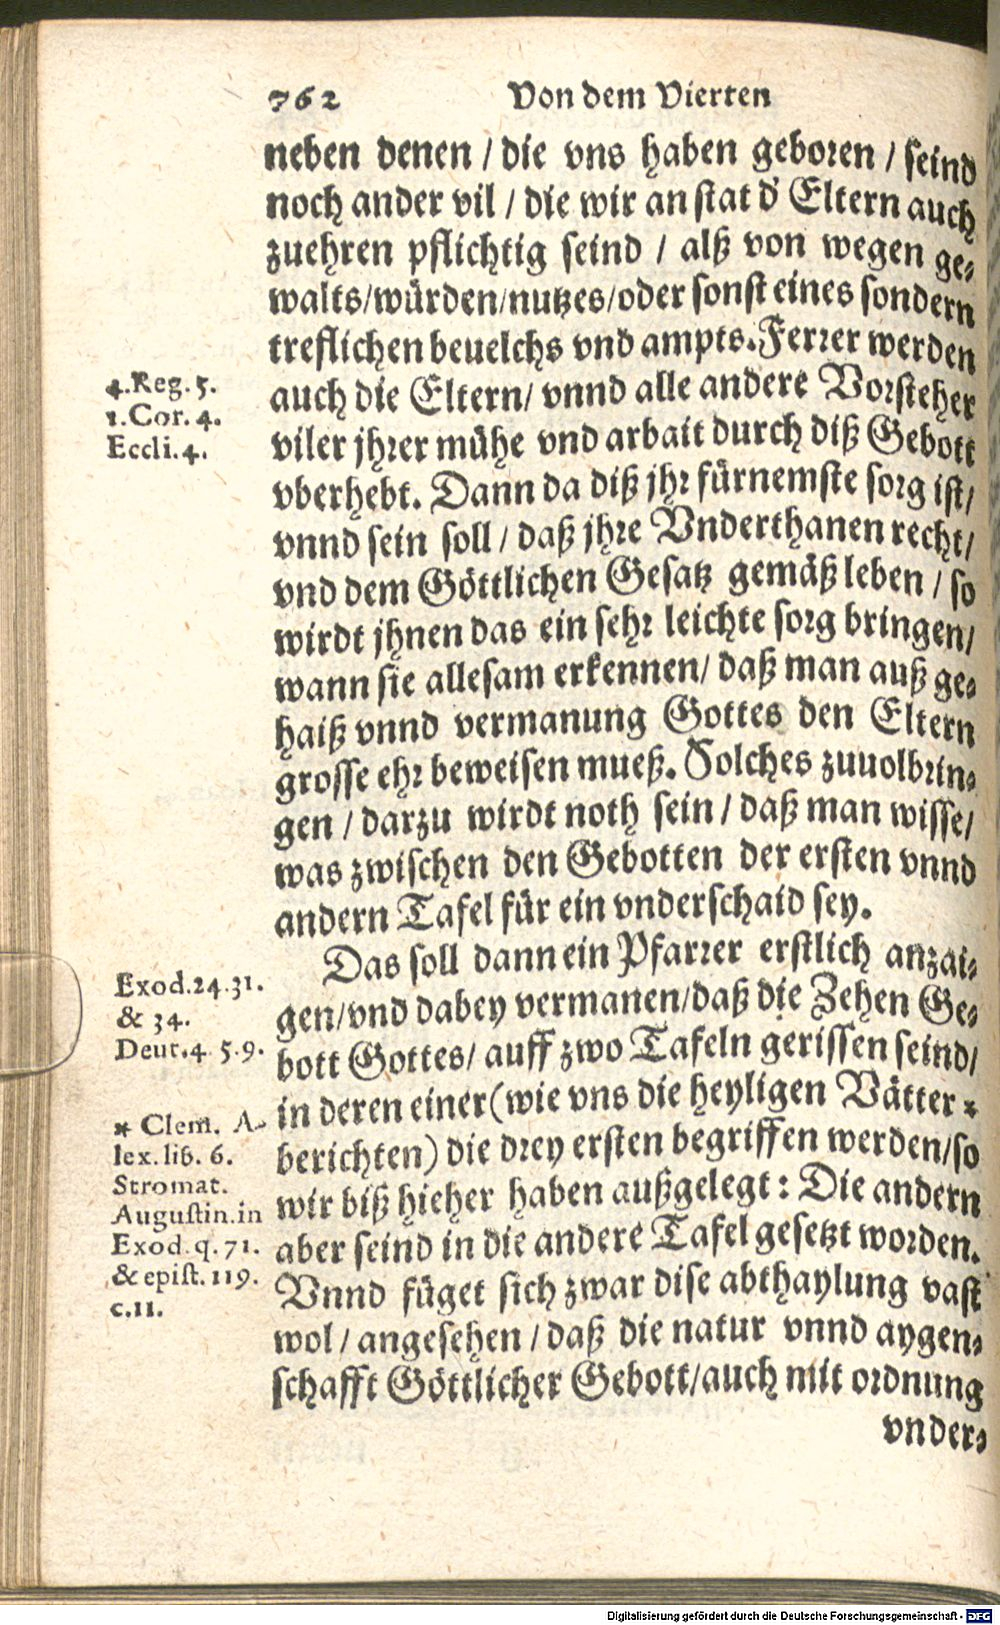 762 Von dem Vierten
neben denen / die vns haben geboren / seind
noch ander vil / die wir an stat d' Eltern auch
zuehren pflichtig seind / alß von wegen ge-
walts/würden/nutzes/oder sonst eines sondern
treflichen beuelchs vnd ampts. Ferrer werden
auch die Eltern/ vnnd alle andere Vorsteher
viler jhrer mühe vnd arbait durch diß Gebott
vberhebt. Dann da diß jhr fürnemste sorg ist/
vnnd sein soll / daß jhre Vnderthanen recht/
vnd dem Göttlichen Gesatz gemäß leben / so
wirdt jhnen das ein sehr leichte sorg bringen/
wann sie allesam erkennen/ daß man auß ge-
haiß vnnd vermanung Gottes den Eltern
grosse ehr beweisen mueß. Solches zuuolbrin-
gen / darzu wirdt noth sein / daß man wisse/
was zwischen den Gebotten der ersten vnnd
andern Tafel für ein vnderschaid sey.
Das soll dann ein Pfarrer erstlich anzai-
gen/vnd dabey vermanen/daß die Zehen Ge-
bott Gottes/ auff zwo Tafeln gerissen seind/
in deren einer (wie vns die heyligen Vätter *
berichten) die drey ersten begriffen werden/so
wir biß hieher haben außgelegt : Die andern
aber seind in die andere Tafel gesetzt worden.
Vnnd füget sich zwar dise abthaylung vast
wol / angesehen / daß die natur vnnd aygen-
schafft Göttlicher Gebott/auch mit ordnung
vnder-
4.Reg. 5.
1.Cor. 4.
Eccli.4.
Exod.24.31.
& 34.
Deut.4. 5.9.
* Clem. A-
lex. lib. 6.
Stromat.
Augustin.in
Exod.q.71.
& epist. 119.
c.11.
Digitalisierung gefördert durch die Deutsche Forschungsgemeinschaft - DFG